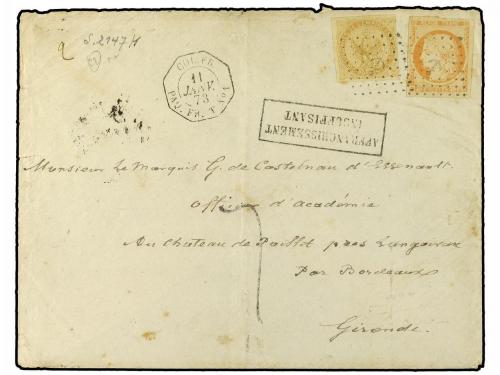 S. 2147/1
COL. FR.
11
JANV.
73
PAQ. FR. T No 1
AFFRANCHISSEMENT
INSUFFISANT
Monsieur Le Marquis G. de Castelnau d'Essenault
Officier d'Académie
Au Chateau de Paillet près Langoiran
Par Bordeaux
Gironde.